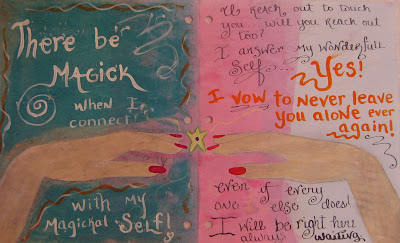 There be
MAGICK
when I
connect!
with my
Magickal Self!
As I reach out to touch
you... will you reach out
too?
I answer my wonderfull
Self...
Yes!
I vow to never leave
you alone ever
again!
even if every
one else does!
I will be right here
always waiting.